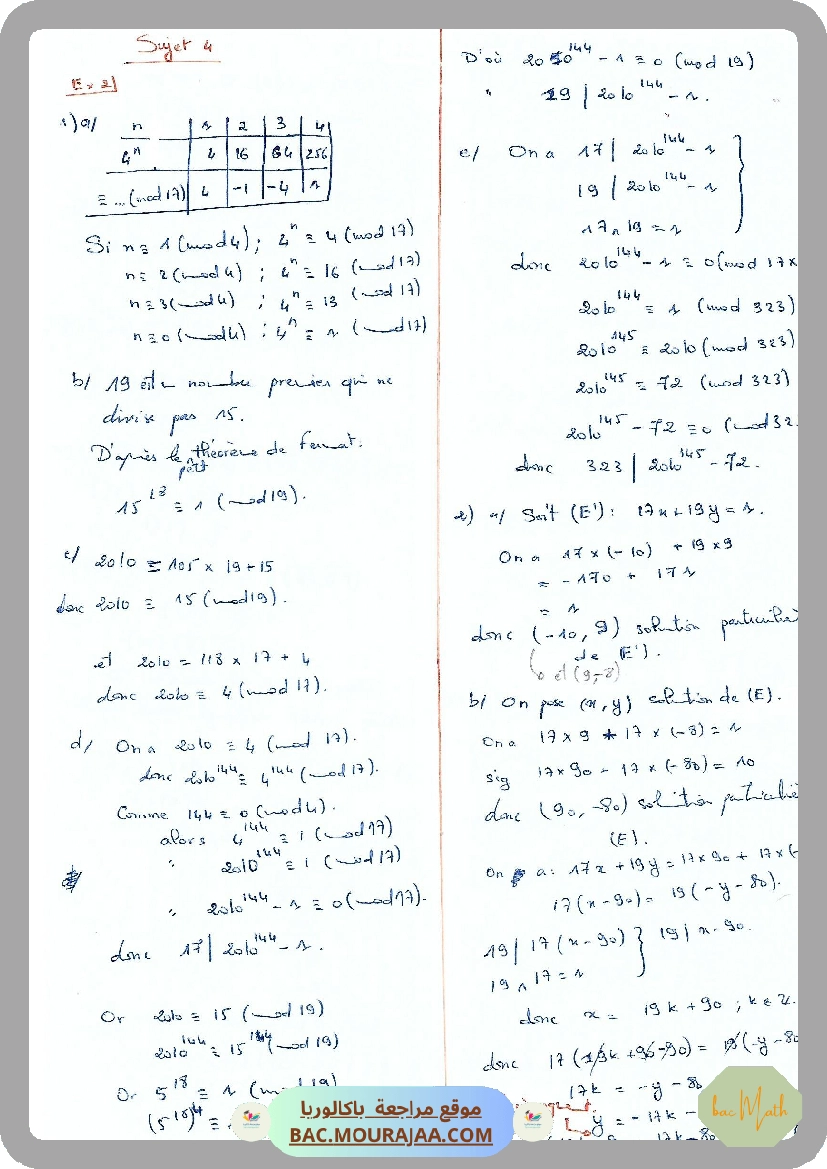 Sujet 4
Ex 2
1) a/ n 1 2 3 4
4ⁿ 4 16 64 256
≡ ... (mod 17) 4 -1 -4 1
Si n ≡ 1 (mod 4) ; 4ⁿ ≡ 4 (mod 17)
n ≡ 2 (mod 4) ; 4ⁿ ≡ 16 (mod 17)
n ≡ 3 (mod 4) ; 4ⁿ ≡ 13 (mod 17)
n ≡ 0 (mod 4) ; 4ⁿ ≡ 1 (mod 17)
b/ 19 est un nombre premier qui ne
divise pas 15.
D'après le petit théorème de Fermat.
15¹⁸ ≡ 1 (mod 19).
c/ 2010 = 105 × 19 + 15
donc 2010 ≡ 15 (mod 19).
et 2010 = 118 × 17 + 4
donc 2010 ≡ 4 (mod 17).
d/ On a 2010 ≡ 4 (mod 17).
donc 2010¹⁴⁴ ≡ 4¹⁴⁴ (mod 17).
Comme 144 ≡ 0 (mod 4).
alors 4¹⁴⁴ ≡ 1 (mod 17)
" 2010¹⁴⁴ ≡ 1 (mod 17)
" 2010¹⁴⁴ - 1 ≡ 0 (mod 17).
donc 17 | 2010¹⁴⁴ - 1.
Or 2010 ≡ 15 (mod 19)
2010¹⁴⁴ ≡ 15¹⁴⁴ (mod 19)
Or 5¹⁸ ≡ 1 (mod 19)
(5¹⁸)⁴ ≡
D'où 2010¹⁴⁴ - 1 ≡ 0 (mod 19)
" 19 | 2010¹⁴⁴ - 1.
e/ On a 17 | 2010¹⁴⁴ - 1
19 | 2010¹⁴⁴ - 1
17 ∧ 19 = 1
donc 2010¹⁴⁴ - 1 ≡ 0 (mod 17×
2010¹⁴⁴ ≡ 1 (mod 323)
2010¹⁴⁵ ≡ 2010 (mod 323)
2010¹⁴⁵ ≡ 72 (mod 323)
2010¹⁴⁵ - 72 ≡ 0 (mod 32
donc 323 | 2010¹⁴⁵ - 72.
2) a/ Soit (E') : 17x + 19y = 1.
On a 17 × (-10) + 19 × 9
= -170 + 171
= 1
donc (-10, 9) solution particuliè
de (E').
et (9, -8)
b/ On pose (x, y) solution de (E).
On a 17 × 9 + 17 × (-8) = 1
sig 17 × 90 + 17 × (-80) = 10
donc (90, -80) solution particulière
(E).
On a : 17x + 19y = 17 × 90 + 17 × (-
17(x - 90) = 19(-y - 80).
19 | 17(x - 90) } 19 | x - 90.
19 ∧ 17 = 1
donc x = 19k + 90 ; k ∈ ℤ.
donc 17(19k + 90 - 90) = 19(-y - 80
17k = -y - 80
y = -17k -
موقع مراجعة باكالوريا
BAC.MOURAJAA.COM
bac Math